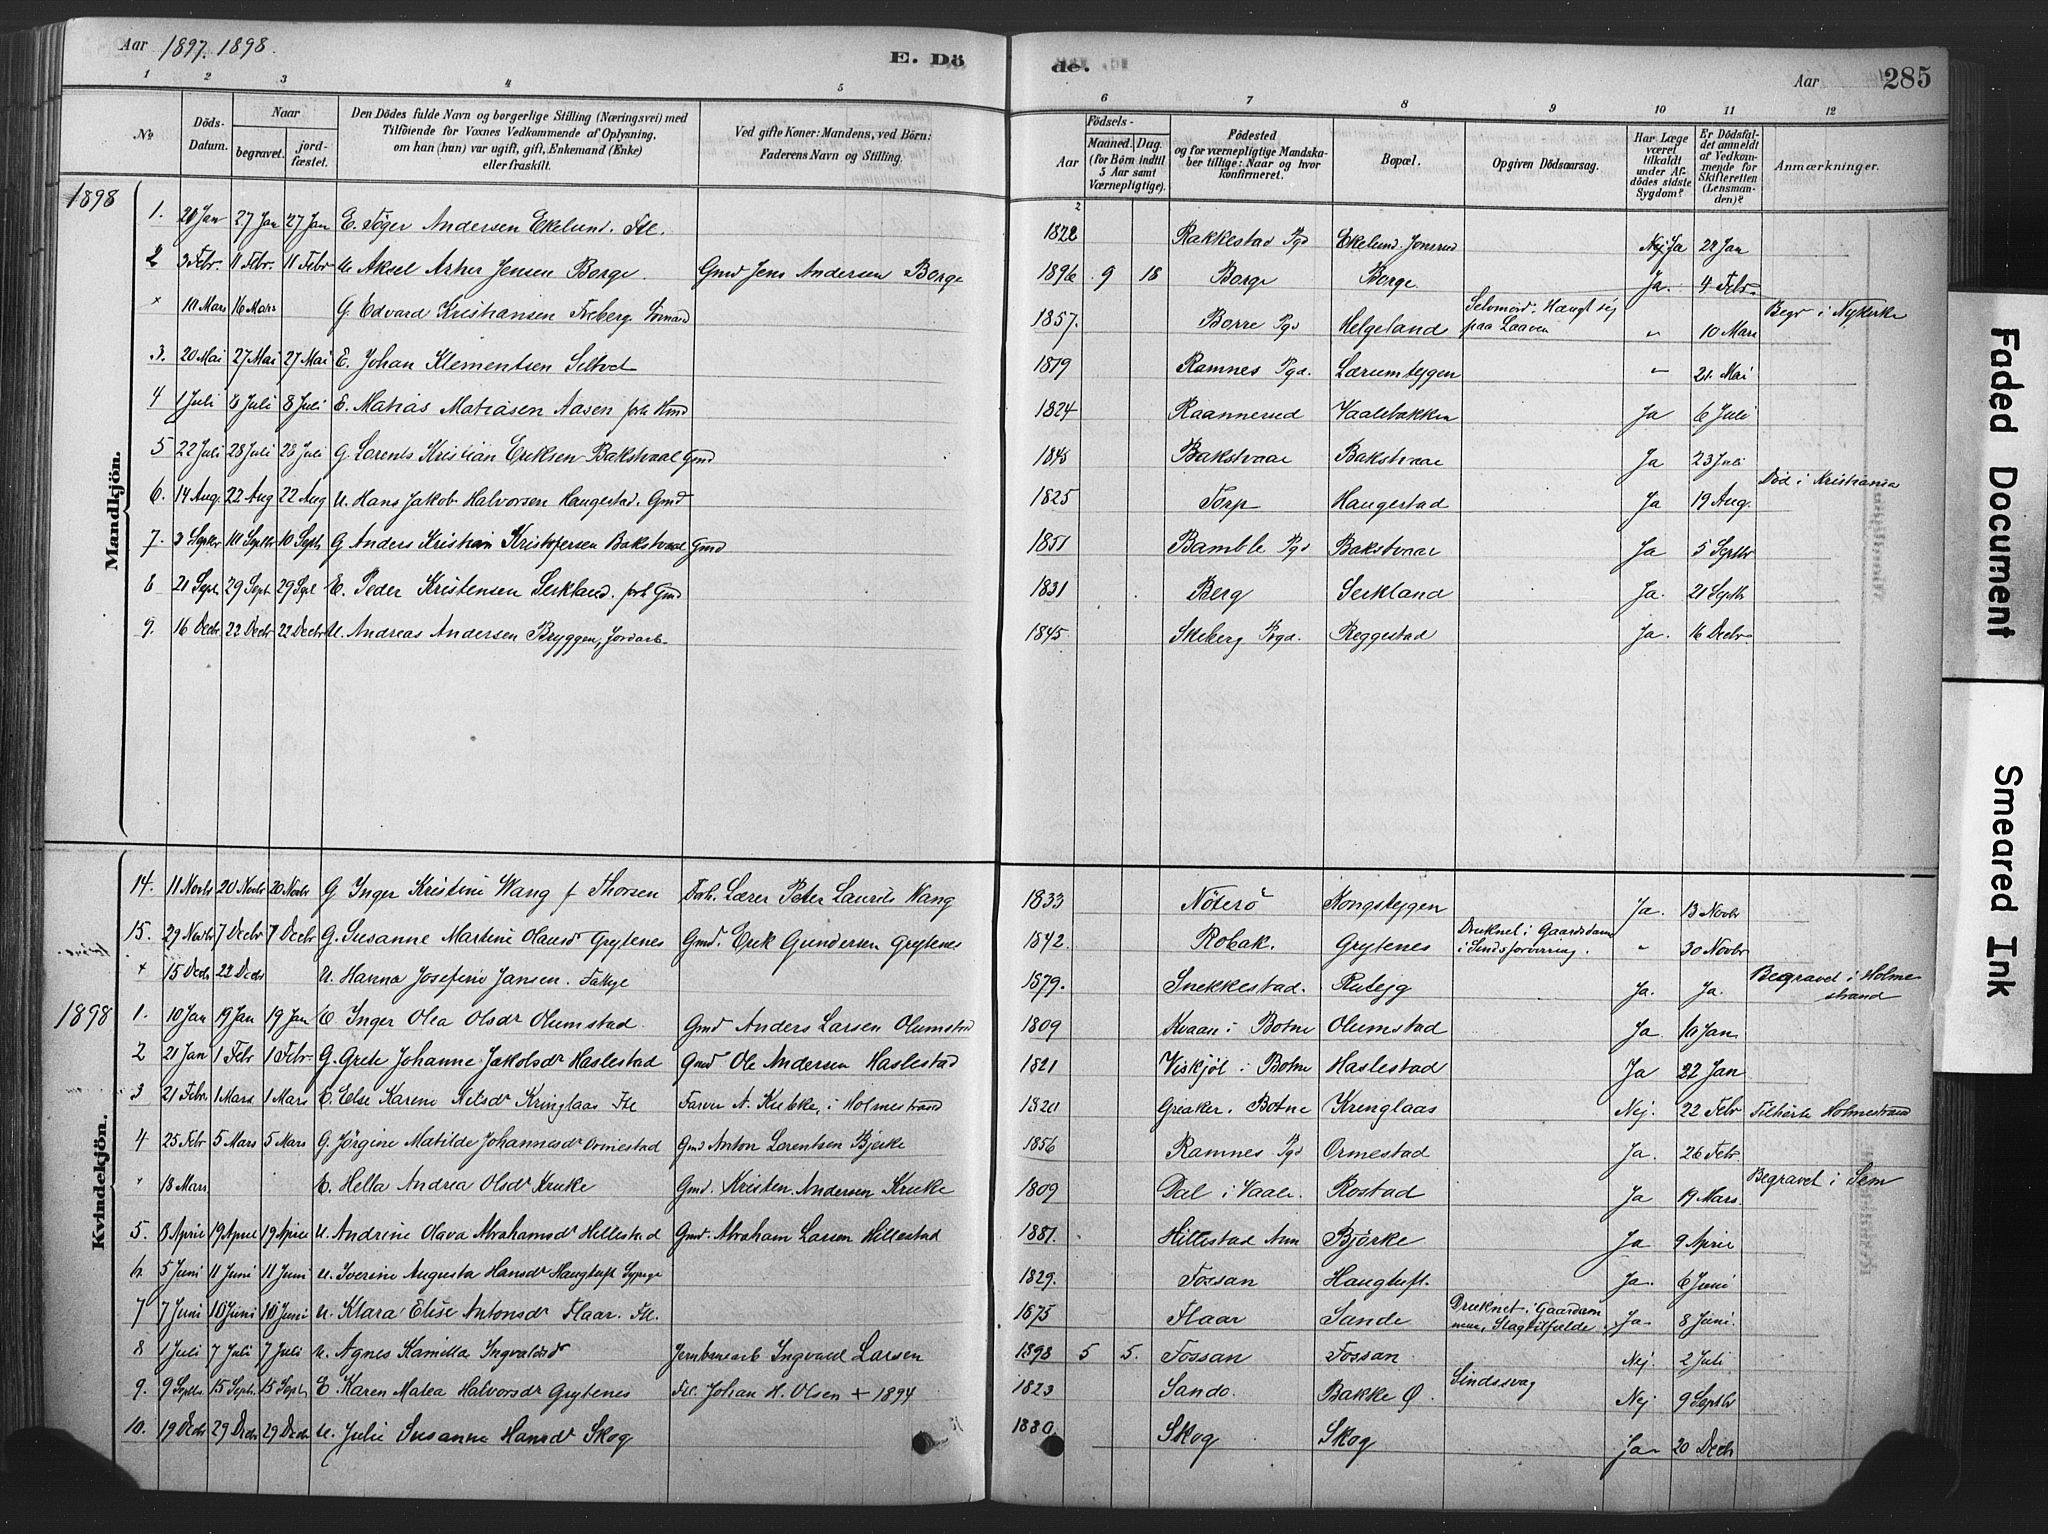 Aar 1897. 1898.
E. Dö
de.
Aar
285
1 2 3 4 5 6 7 8 9 10 11 12
No
Döds-Datum.
Naar
begravet.
jord-fæstet.
Den Dödes fulde Navn og borgerlige Stilling (Næringsvei) med
Tilföiende for Voxnes Vedkommende af Oplysning,
om han (hun) var ugift, gift, Enkemand (Enke)
eller fraskilt.
Ved gifte Koner: Mandens, ved Börn:
Faderens Navn og Stilling.
Födsels-
Aar
Maaned. Dag.
(for Börn indtil
5 Aar samt
Værnepligtige).
Födested
og for værnepligtige Mandska-
ber tillige: Naar og hvor
konfirmeret.
Bopæl.
Opgiven Dödsaarsag.
Har Læge
været
tilkaldt
under Af-
dödes sidste
Sygdom?
Er Dödsfal-
det anmeldt
af Vedkom-
mende for
Skifteretten
(Lensman-
den)?
Anmærkninger.
1898
Mandkjön.
1. 20 Jan 27 Jan 27 Jan E. Töger Andersen Ekelund. Fll. 1822 Rakkestad Pgd Ekelund. Jonsrud Nej Ja 22 Jan
2 3 Febr. 11 Febr. 11 Febr U Aksel Asker Jensen Borge. Gmd Jens Andersen Borge 1896 9 18 Borge Borge. Ja. 4 Febr.
+ 10 Mars 16 Mars G. Edvard Kristiansen Freberg, Sömand 1857. Borre Pgd Helgeland Selvmord. Hængt sig paa Laaven " 10 Mars Begr i Nykirke
3. 20 Mai 27 Mai 27 Mai E. Johan Klementsen Selvod 1819 Ramnes Pgd. Lærumteigen " 21. Mai
4 1 Juli 8 Juli 8 Juli E. Matias Matiasen Aasen forh Hmd 1824 Raannerud Vaalebakken Ja 6 Juli
5 22 Juli 28 Juli 28 Juli G. Lorents Kristian Eriksen Bakstvaal Gmd 1845 Bakstvaar Bakstvaar Ja 23 Juli
6. 14 Aug. 22 Aug 22 Aug U. Hans Jakob Halvorsen Haugestad. Gmd 1825 Torp Haugestad Ja 19 Aug. Död i Kristiania
7. 3 Septbr 10 Septbr 10 Septb G Anders Kristian Kristofersen Bakstvaal Gmd 1851 Bamble Pgd Bakstvaar Ja 5 Septbr
8 21 Sept. 29 Sept. 29 Sept E. Peder Kristensen Serkland. forh Gmd 1831 Berg Serkland Ja. 21 Septbr
9. 16 Decbr 22 Decbr 22 Decbr U. Andreas Andersen Bryggen, Jordarb. 1845. Skeberg Pgd. Reggestad Ja. 16 Decbr.
Kvindekjön.
14. 11 Novbr 20 Novbr 20 Novbr G Inger Kristine Wang f Thorsen Forh. Lærer Peter Laurits Wang 1833 Nöterö Kongsteigen Ja. 13 Novbr
15. 29 Novbr 7 Decbr 7 Decbr G. Susanne Martine Olausdr Grytenes Gmd. Erik Gundersen Grytenes 1842. Robak. Grytenes Druknet i Gaardsdam i Sindsforvirring. " 30 Novbr
+ 15 Decbr 22 Decbr U. Hanna Josefine Jansen. 1879. Snekkestad. Ja. Ja. Begravet i Holmestrand
1898
1. 10 Jan 19 Jan 19 Jan E. Inger Olea Olsdr Olumstad. Gmd Anders Larsen Olumstad 1809 Kvaan i Botne Olumstad Ja. 10 Jan
2 21 Jan 1 Febr 1 Febr. G. Grete Johanne Jakobsdr Haslestad Gmd Ole Andersen Haslestad 1821 Viskjöl i Botne Haslestad Ja 22 Jan
3 21 Febr. 1 Mars 1 Mars E. Else Karine Nilsdr Kringlaas Fll Farver A. Kiebke, i Holmestrand 1820 Greaker i Botne Krenglaas Nej. 22 Febr Tilhörte Holmestrand
4 25 Febr 5 Mars 5 Mars G. Jörgine Matilde Johannesdr Ormestad Gmd Anton Lorentsen Bjerke 1856 Ramnes Pgd Ormestad Ja. 26 Febr.
" 18 Mars E. Hella Andrea Olsdr Kruke Gmd. Kristen Andersen Kruke 1809 Dal i Vaale Rostad Ja 19 Mars. Begravet i Sem
5. 8 April 19 April 19 April U. Andrine Olava Abrahamsdr Hillestad Gmd. Abraham Larsen Hillestad 1881. Hillestad Ann Björke Ja 9 April
6. 5 Juni 11 Juni 11 Juni U. Iverine Augusta Hansdr Haugtuft Sypige 1829. Fossan Haugtuft. Ja. 6 Juni
7 7 Juni 10 Juni 10 Juni U. Klara Elise Antonsdr Flaar. Fll. 1875 Flaar Sande Druknet i Gaardsdammen, Slagtilfælde. Ja. 8 Juni.
8 1 Juli 7 Juli 7 Juli U. Agnes Kamilla Ingvaldsdr Jernbanearb Ingvald Larsen 1898 5 5. Fossan Fossan Nej. 2 Juli
9. 9 Septbr 15 Septb. 15 Septb E. Karen Matea Halvorsdr Grytenes Fll. Johan H. Olsen + 1894 1823 Sando. Bakke Ø. Sindssvag Nej 9 Septbr
10. 19 Decbr 29 Decbr 29 Decbr U. Julie Susanne Hansdr Skog 1880. Skog Skog Ja. 20 Decbr
Faded Document
Smeared Ink